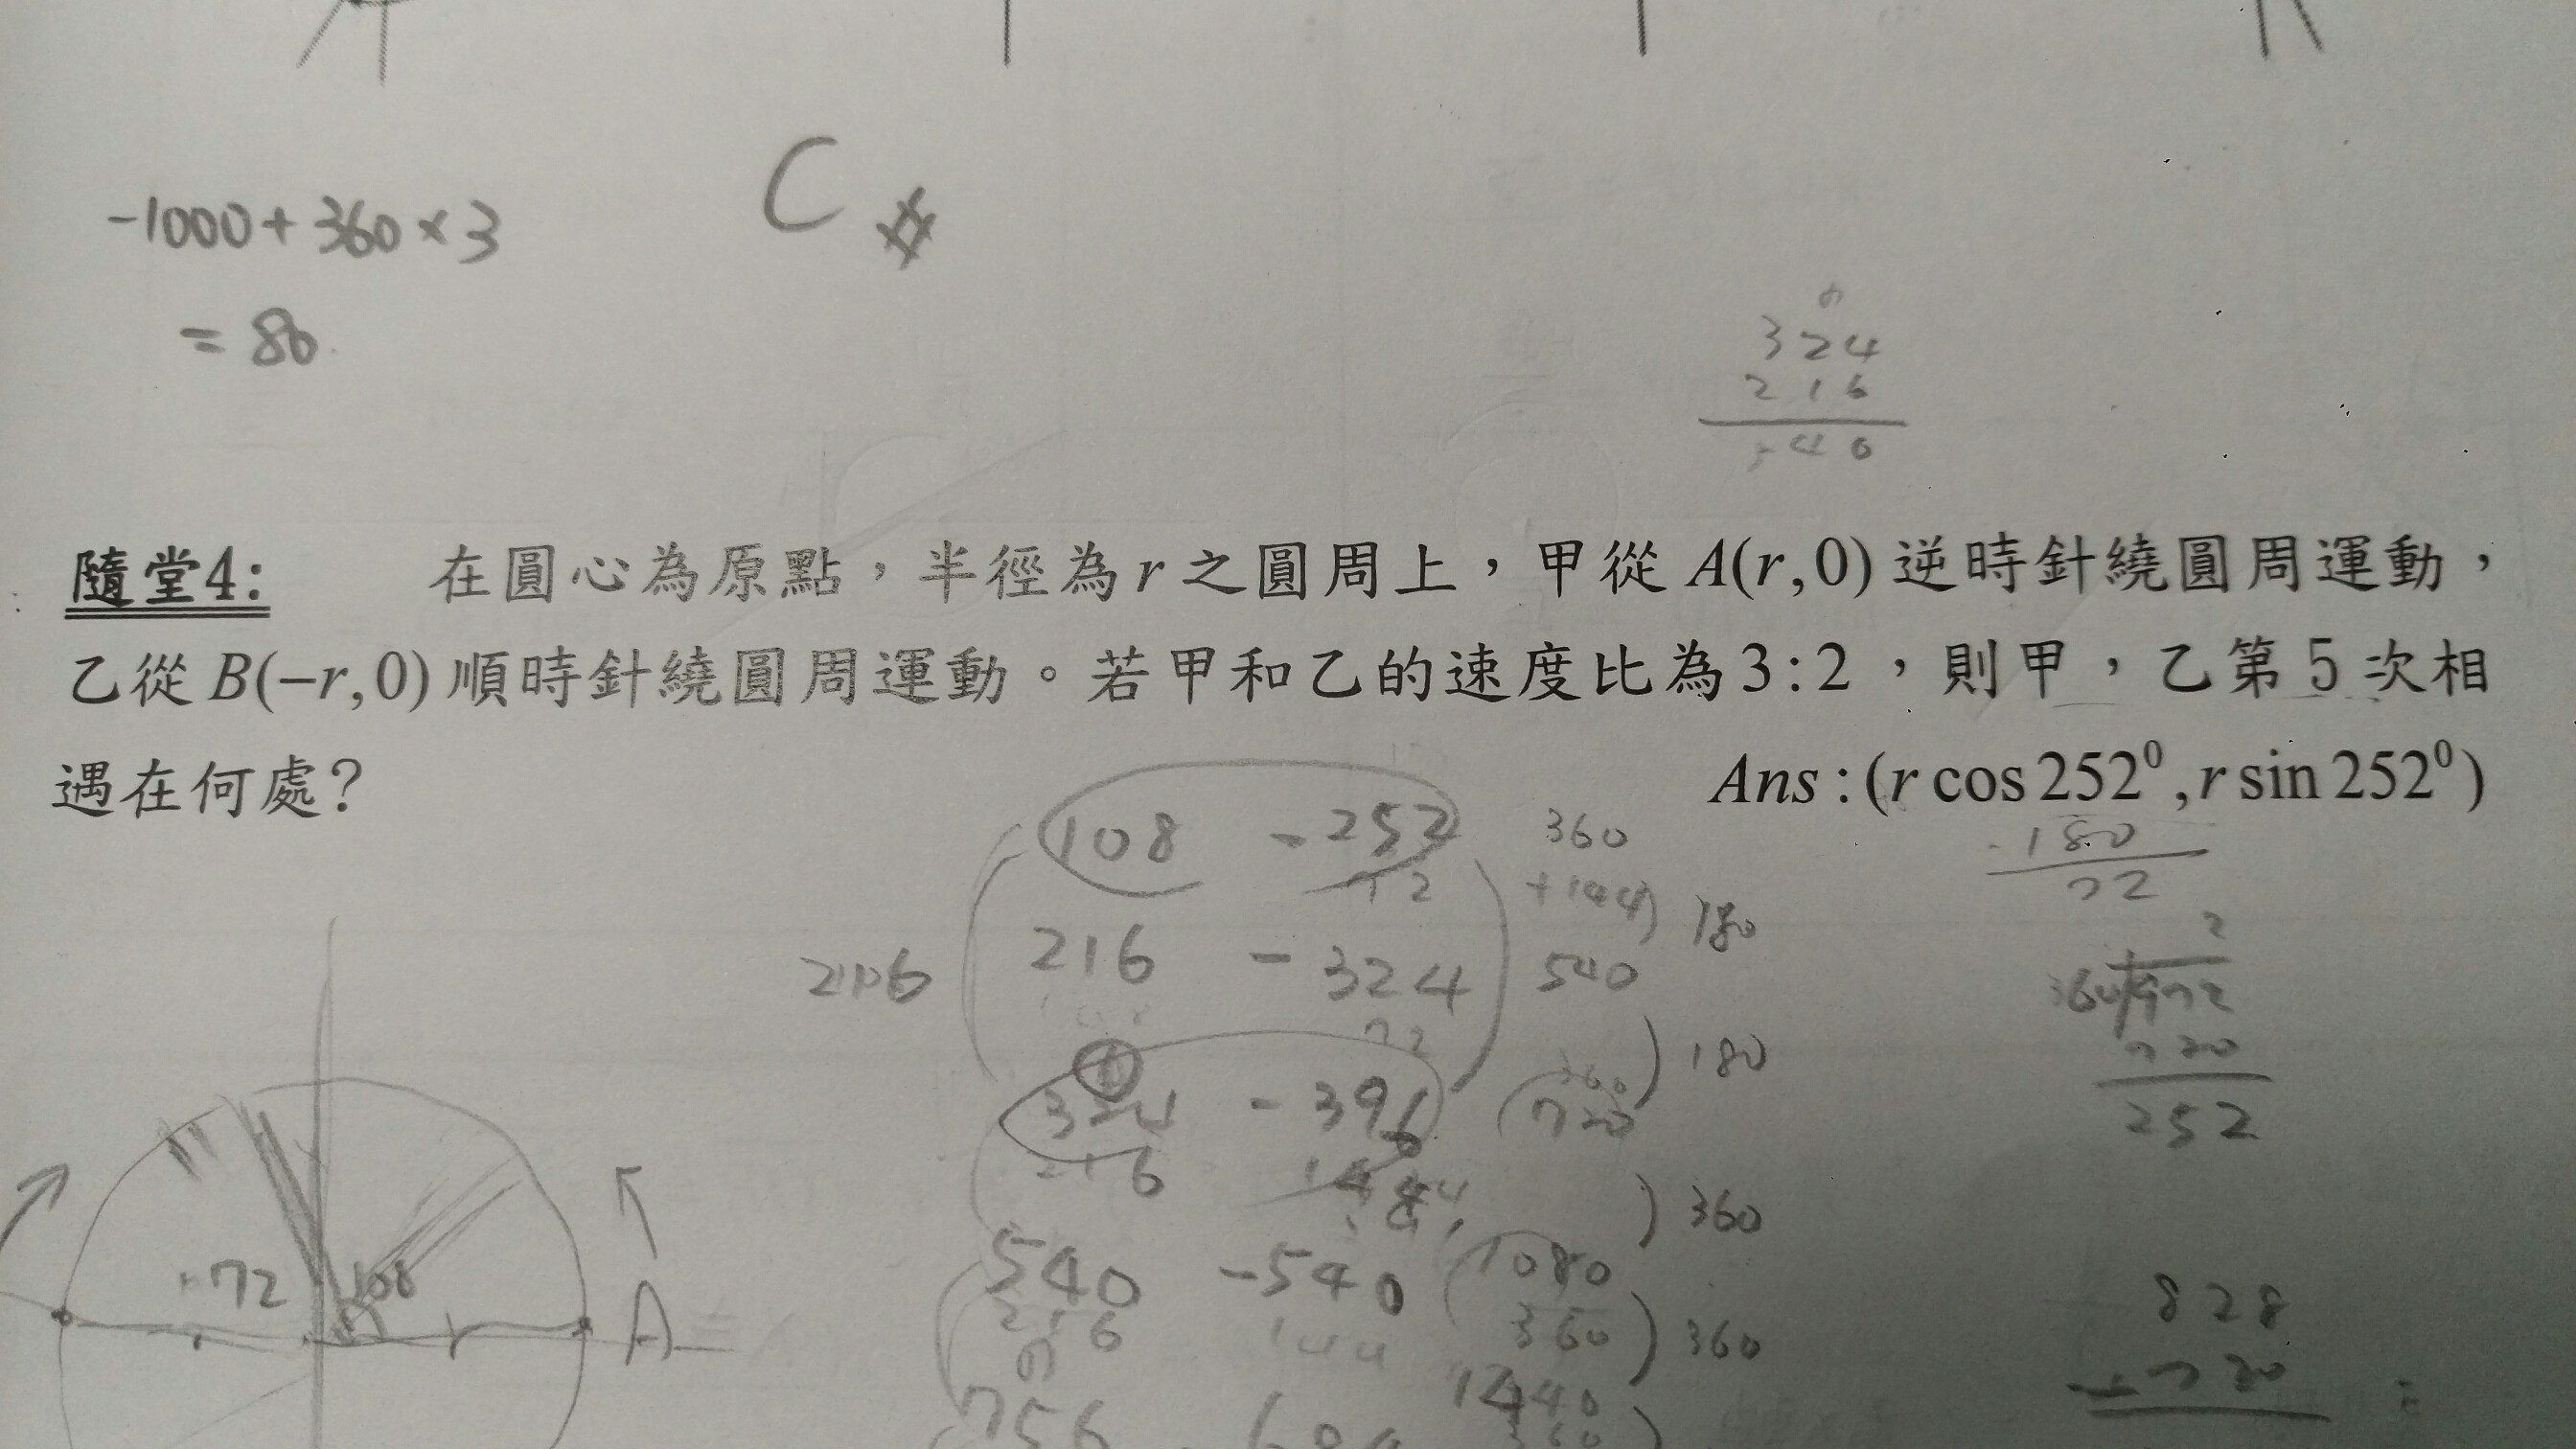 -1000+360×3
= 80
C
324
216
540
隨堂4: 在圓心為原點，半徑為r之圓周上，甲從A(r,0)逆時針繞圓周運動，
乙從B(-r,0)順時針繞圓周運動。若甲和乙的速度比為3:2，則甲，乙第5次相
遇在何處?
Ans:(r cos 252⁰, r sin 252⁰)
-180
72
108 -252 360
72 +144 180
216 -324 540
216
72 180
-396 720
216
360
540 -540 1080
216 144 360 360
756 1440
2
720
252
828
720
72 108
r A